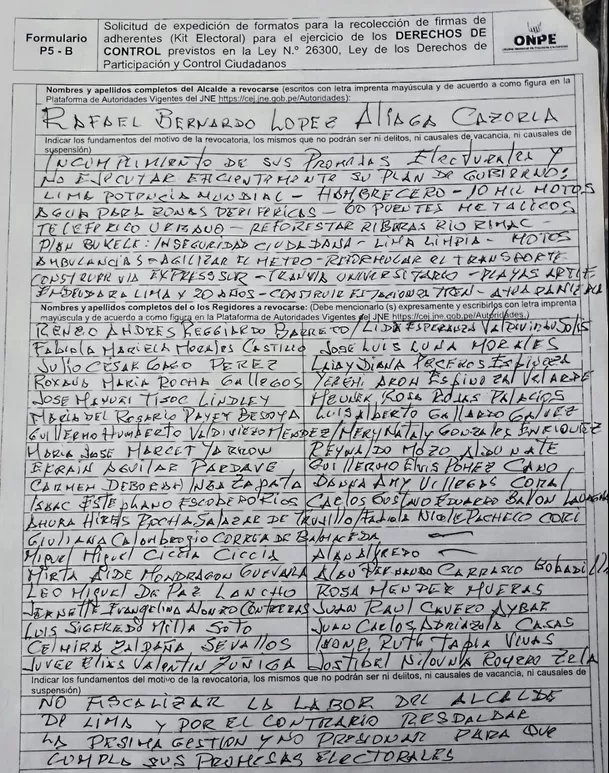 Formulario
P5 - B
Solicitud de expedición de formatos para la recolección de firmas de
adherentes (Kit Electoral) para el ejercicio de los DERECHOS DE
CONTROL previstos en la Ley N.º 26300, Ley de los Derechos de
Participación y Control Ciudadanos
ONPE
Nombres y apellidos completos del Alcalde a revocarse (escritos con letra imprenta mayúscula y de acuerdo a como figura en la
Plataforma de Autoridades Vigentes del JNE https://cej.jne.gob.pe/Autoridades):
RAFAEL BERNARDO LOPEZ ALIAGA CAZORLA
Indicar los fundamentos del motivo de la revocatoria, los mismos que no podrán ser ni delitos, ni causales de vacancia, ni causales de
suspensión)
INCUMPLIMIENTO DE SUS PROMESAS Electorales y
NO EJECUTAR EFICIENTEMENTE SU PLAN DE GOBIERNO:
LIMA POTENCIA MUNDIAL - HAMBRE CERO - 10 MIL MOTOS
AGUA PARA ZONAS PERIFERICAS - 60 PUENTES METALICOS
TELEFERICO URBANO - REFORESTAR RIBERAS RIO RIMAC -
PLAN BUKELE: INSEGURIDAD CIUDADANA - LIMA LIMPIA - MOTOS
AMBULANCIAS - AGILIZAR EL METRO - REFORMULAR EL TRANSPORTE
CONSTRUIR VIA EXPRESS SUR - TRANVIA UNIVERSITARIO - PLAYAS
ENDEUDAR A LIMA y 20 AÑOS - CONSTRUIR TREN -
Nombres y apellidos completos del o los Regidores a revocarse: (Debe mencionarlo (s) expresamente y escribirlos con letra imprenta
mayúscula y de acuerdo a como figura en la Plataforma de Autoridades Vigentes del JNE https://cej.jne.gob.pe/Autoridades.)
RENZO ANDRES REGGIARDO BARRETO / LIDA ESPERANZA VALDIVIA SOLIS
FABIOLA MARIELA MORALES CASTILLO JOSE LUIS LUNA MORALES
JULIO CESAR GAGO PEREZ LEIDY DIANA PECEROS ESPINOZA
ROXANA MARIA ROCHA GALLEGOS YEREMI ARON ESPINOZA VELARDE
JOSE MANUEL TISOC LINDLEY ROSA ROJAS PALACIOS
MARIA DEL ROSARIO PAYET BEDOYA LUIS ALBERTO GALLARDO GALVEZ
GUILLERMO HUMBERTO VALDIVIEZO MENDEZ / MERY NATALY GONZALES ENRIQUEZ
MARIA JOSE MARCET YARROW REYNALDO MOZO
EFRAIN AGUILAR PARDAVE GUILLERMO ELVIS POMEZ CANO
CARMEN DEBORAH INGA ZAPATA DANNA AMY VILLEGAS CORAL
ISAAC ESTEPHANO ESCOBEDO RIOS CARLOS GUSTAVO EDUARDO
ROCHA SALAZAR DE TRUJILLO / FABIOLA NICOLE PACHECO CORI
GIULIANA CALAMBROGIO CORREA DE BALMACEDA
MIGUEL MIGUEL CICCIA CICCIA ALAN ALFREDO
MIRTA AIDE MONDRAGON GUEVARA ALAN FERNANDO CARRASCO BOBADILLA
LEO MIGUEL DE PAZ LANCHO ROSA MENDEZ
JEANNETTE EVANGELINA ALONZO CONTRERAS JUAN RAUL CAVERO AYBAR
LUIS SIGFREDO MILLA SOTO JUAN CARLOS ADRIAZOLA CASAS
CELMIRA ZALDAÑA SEVALLOS IVONE RUTH TAPIA VIVAS
JUVER ELIAS VALENTIN ZUÑIGA ROMERO
Indicar los fundamentos del motivo de la revocatoria, los mismos que no podrán ser ni delitos, ni causales de vacancia, ni causales de
suspensión)
NO FISCALIZAR LA LABOR DEL ALCALDE
DE LIMA Y POR EL CONTRARIO RESPALDAR
LA PESIMA GESTION Y NO PRESIONAR PARA QUE
CUMPLA SUS PROMESAS ELECTORALES